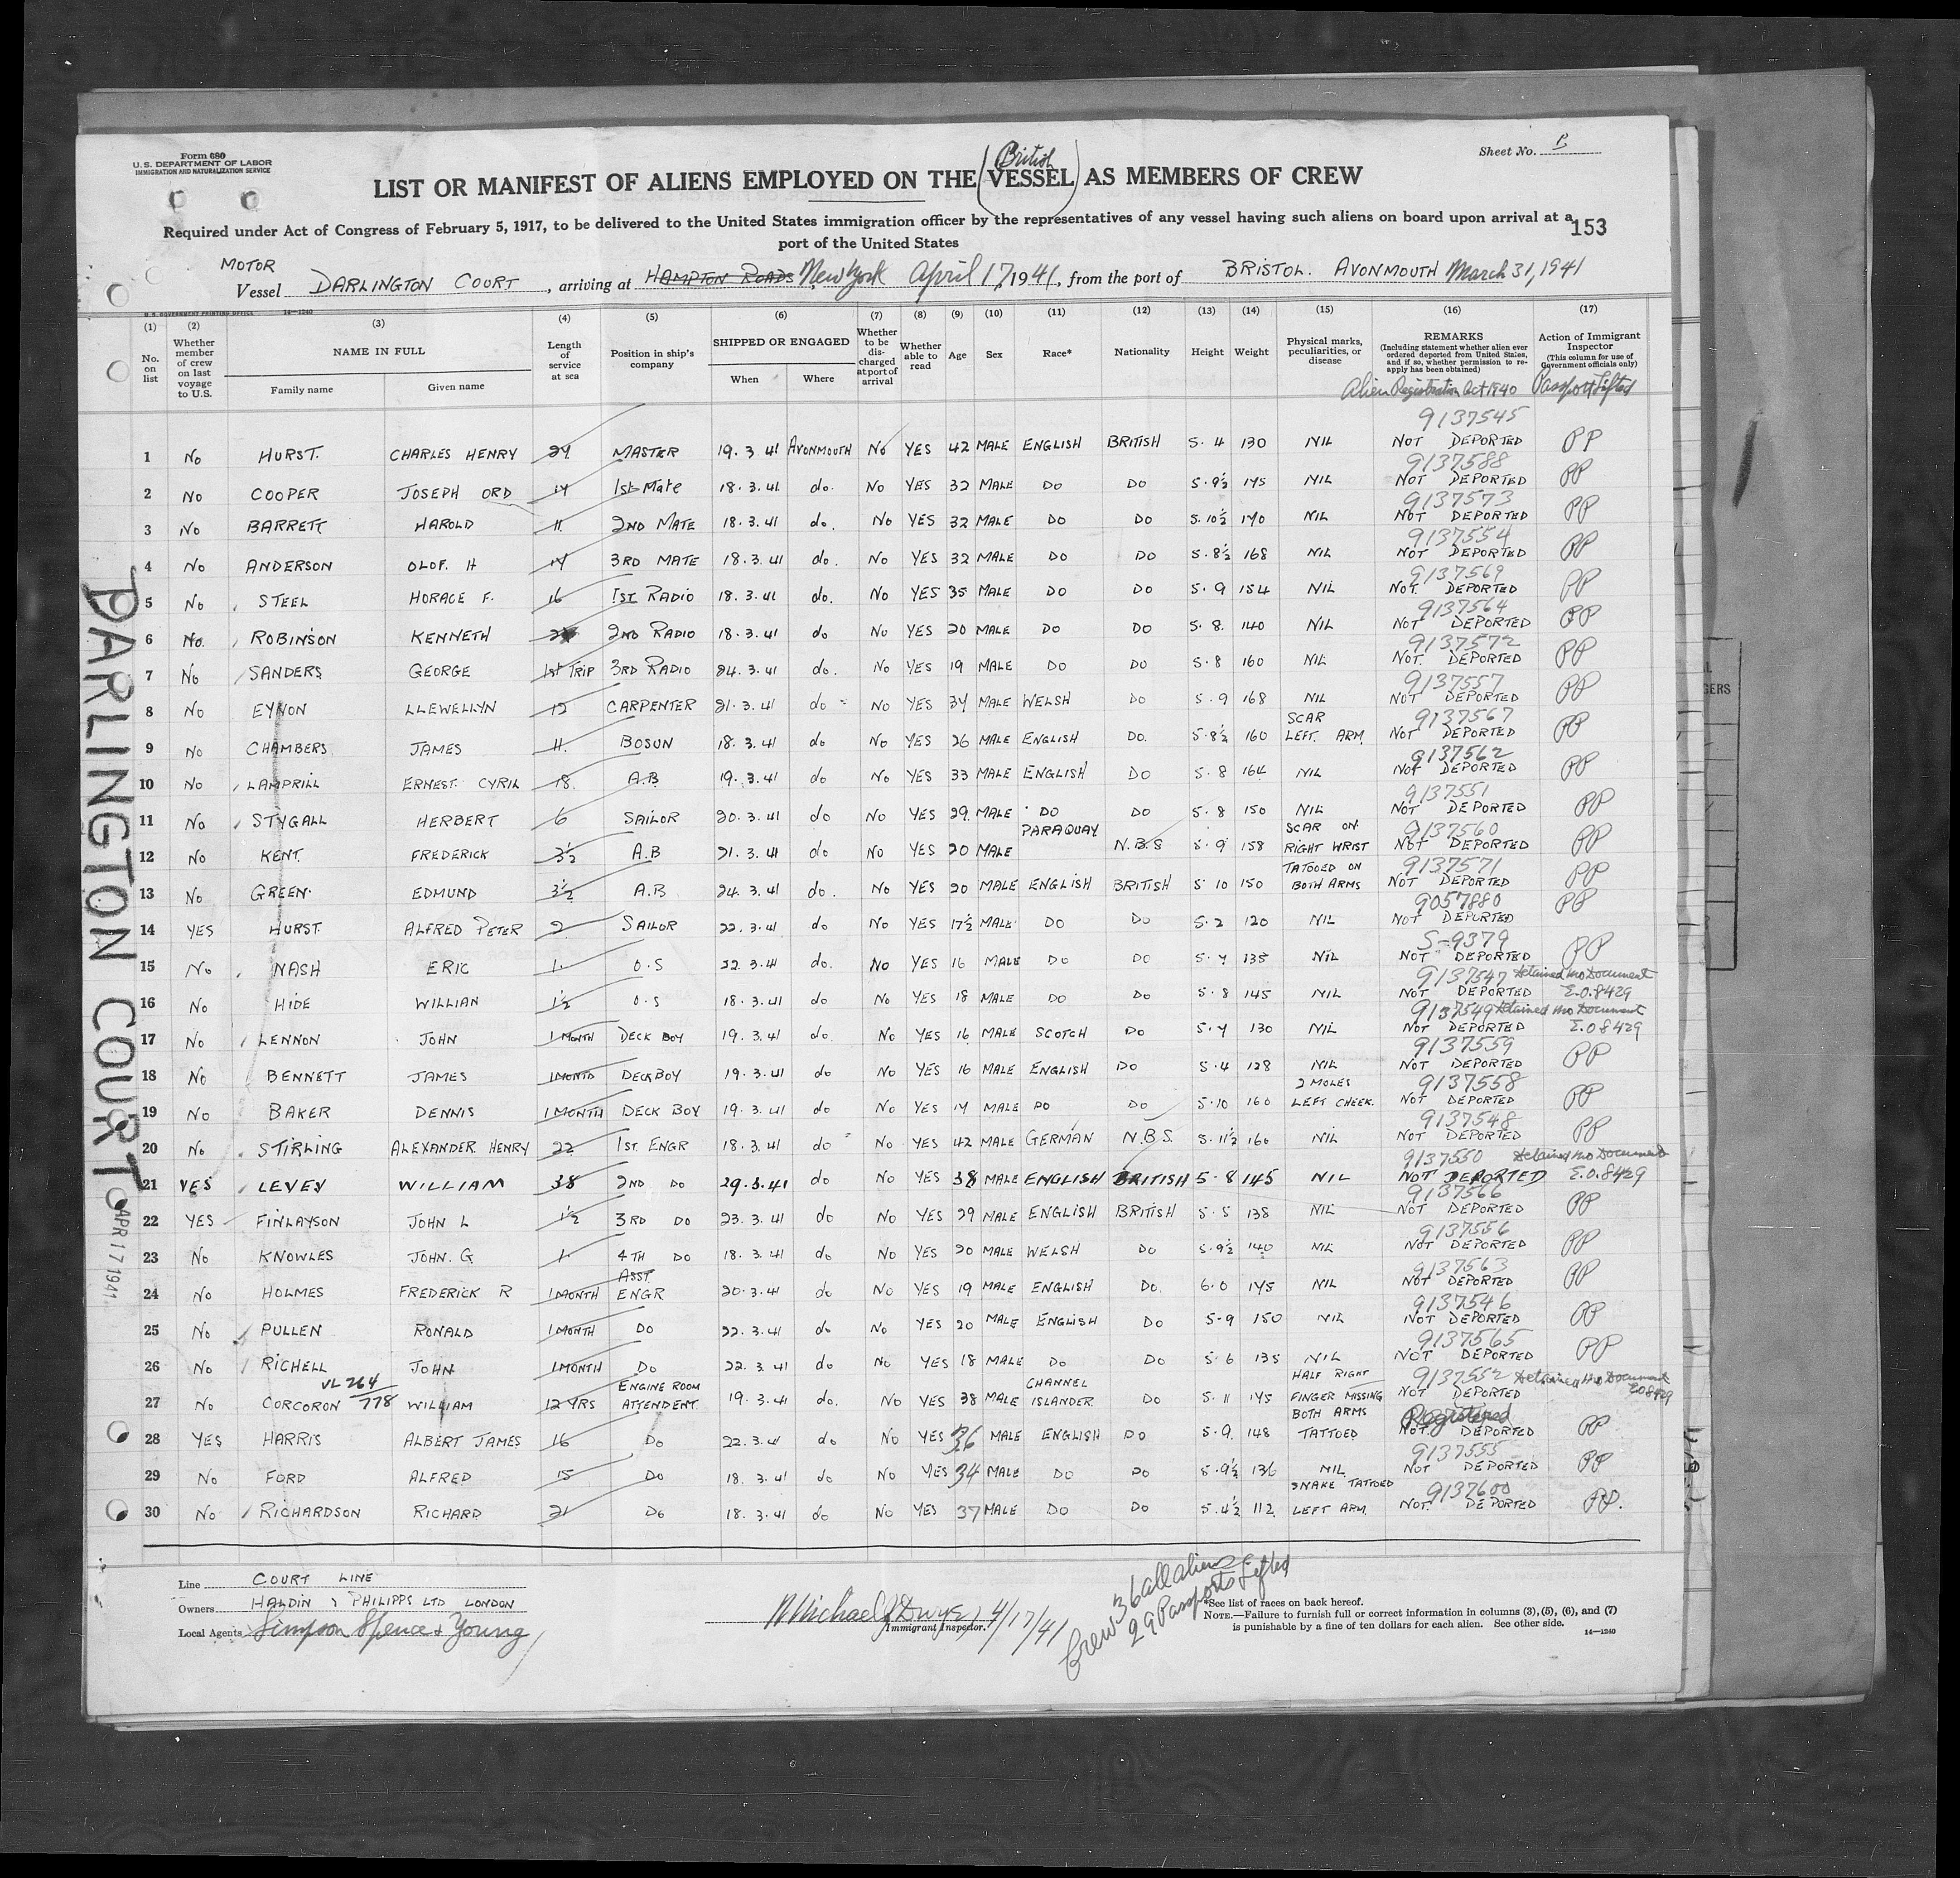 Form 680
U.S. DEPARTMENT OF LABOR
IMMIGRATION AND NATURALIZATION SERVICE
Sheet No.
British
LIST OR MANIFEST OF ALIENS EMPLOYED ON THE (VESSEL) AS MEMBERS OF CREW
Required under Act of Congress of February 5, 1917, to be delivered to the United States immigration officer by the representatives of any vessel having such aliens on board upon arrival at a
port of the United States
153
MOTOR
Vessel DARLINGTON COURT, arriving at HAMPTON ROADS New York April 17, 1941, from the port of BRISTOL. AVONMOUTH March 31, 1941
U.S. GOVERNMENT PRINTING OFFICE 14—1240
(1) (2) (3) (4) (5) (6) (7) (8) (9) (10) (11) (12) (13) (14) (15) (16) (17)
No. on list
Whether member of crew on last voyage to U.S.
NAME IN FULL
Family name
Given name
Length of service at sea
Position in ship's company
SHIPPED OR ENGAGED
When
Where
Whether to be discharged at port of arrival
Whether able to read
Age
Sex
Race*
Nationality
Height
Weight
Physical marks, peculiarities, or disease
REMARKS
(Including statement whether alien ever ordered deported from United States, and if so, whether permission to reapply has been obtained)
Action of Immigrant Inspector
(This column for use of Government officials only)
Alien Registration Act 1940 Passport Lifted
1 No HURST. CHARLES HENRY 24 MASTER 19. 3 41 AVONMOUTH No YES 42 MALE ENGLISH BRITISH 5. 4 130 NIL 9137545 NOT DEPORTED PP
2 No COOPER JOSEPH ORD 14 1st Mate 18. 3. 41 do. No YES 32 MALE DO DO 5. 9½ 145 NIL 9137588 NOT DEPORTED PP
3 No BARRETT HAROLD 11 2ND MATE 18. 3. 41 do. No YES 32 MALE DO DO 5. 10½ 140 NIL 9137573 NOT DEPORTED PP
4 No ANDERSON OLOF. H 14 3RD MATE 18. 3. 41 do. No YES 32 MALE DO DO 5. 8½ 168 NIL 9137554 NOT DEPORTED PP
5 No STEEL HORACE F. 16 1ST RADIO 18. 3. 41 do. No YES 35 MALE DO DO 5. 9 154 NIL 9137569 NOT. DEPORTED PP
6 No. ROBINSON KENNETH 2 2ND RADIO 18. 3. 41 do No YES 20 MALE DO DO 5. 8. 140 NIL 9137564 NOT DEPORTED PP
7 No SANDERS GEORGE 1st TRIP 3RD RADIO 24. 3. 41 do. No YES 19 MALE DO DO 5. 8 160 NIL 9137572 NOT. DEPORTED PP
8 No EYNON LLEWELLYN 12 CARPENTER 21. 3. 41 do No YES 34 MALE WELSH DO 5. 9 168 NIL 9137557 NOT DEPORTED PP
9 No CHAMBERS JAMES 11. BOSUN 18. 3. 41 do No YES 26 MALE ENGLISH DO. 5. 8½ 160 SCAR LEFT. ARM 9137567 NOT DEPORTED PP
10 No LAMPRILL ERNEST CYRIL 18. A.B 19. 3. 41 do No YES 33 MALE ENGLISH DO 5. 8 164 NIL 9137562 NOT DEPORTED PP
11 No STYGALL HERBERT 6 SAILOR 20. 3. 41 do No YES 29. MALE DO DO 5. 8 150 NIL 9137551 NOT DEPORTED PP
12 No KENT FREDERICK 3½ A.B 21. 3. 41 do No YES 20 MALE PARAQUAY N.B.S 5. 9 158 SCAR ON RIGHT WRIST 9137560 NOT DEPORTED PP
13 No GREEN. EDMUND 3½ A.B 24. 3. 41 do. No YES 20 MALE ENGLISH BRITISH 5 10 150 TATOOED ON BOTH ARMS 9137571 NOT DEPORTED PP
14 YES HURST ALFRED PETER 2 SAILOR 22. 3. 41 do No YES 17½ MALE DO DO 5. 2 120 NIL 9057880 NOT DEPORTED PP
15 No. NASH ERIC 1. O.S 22. 3. 41 do. No YES 16 MALE DO DO 5. 4 135 NIL S-9379 NOT DEPORTED PP
16 No HIDE WILLIAN 1½ O.S 18. 3. 41 do No YES 18 MALE DO Do 5. 8 145 NIL 9137547 NOT DEPORTED Detained no Document E.O.8429
17 No LENNON JOHN 1 MONTH DECK BOY 19. 3. 41 do. No YES 16 MALE SCOTCH DO 5. 4 130 NIL 9137549 NOT DEPORTED Detained no Document E.O 8429
18 No BENNETT JAMES 1 MONTH DECK BOY 19. 3. 41 do No YES 16 MALE ENGLISH DO 5. 4 128 NIL 9137559 NOT DEPORTED PP
19 No BAKER DENNIS 1 MONTH DECK BOY 19. 3. 41 do No YES 14 MALE DO DO 5. 10 160 2 MOLES LEFT CHEEK. 9137558 NOT DEPORTED PP
20 No STIRLING ALEXANDER HENRY 22 1ST ENGR 18. 3. 41 do No YES 42 MALE GERMAN N.B.S. 5. 11½ 160 NIL 9137548 NOT DEPORTED PP
21 YES LEVEY WILLIAM 38 2ND DO 29. 3. 41 do No YES 38 MALE ENGLISH BRITISH 5. 8 145 NIL 9137550 NOT DEPORTED Detained no Document E.O.8429
22 YES FINLAYSON JOHN L 1½ 3RD DO 23. 3. 41 do No YES 29 MALE ENGLISH BRITISH 5. 5 138 NIL 9137566 NOT DEPORTED PP
23 No KNOWLES JOHN. G 1. 4TH DO 18. 3. 41 do No YES 20 MALE WELSH DO 5. 9½ 140 NIL 9137556 NOT DEPORTED PP
24 No HOLMES FREDERICK R 1 MONTH ASST. ENGR 20. 3. 41 do No YES 19 MALE ENGLISH DO. 6. 0 145 NIL 9137563 NOT DEPORTED PP
25 No PULLEN RONALD 1 MONTH DO 22. 3. 41 do No YES 20 MALE ENGLISH DO 5-9 150 NIL 9137546 NOT DEPORTED PP
26 No RICHELL JOHN 1 MONTH DO 22. 3. 41 do No YES 18 MALE DO DO 5. 6 135 NIL 9137565 NOT DEPORTED PP
27 No CORCORON VL 264/778 WILLIAM 12 YRS ENGINE ROOM ATTENDENT 19. 3. 41 do. No YES 38 MALE CHANNEL ISLANDER DO 5. 11 145 HALF RIGHT FINGER MISSING 9137552 NOT DEPORTED Detained no Document E.O.8429
28 YES HARRIS ALBERT JAMES 16 DO 22. 3. 41 do No YES 36 MALE ENGLISH DO 5. 9. 148 BOTH ARMS TATTOED Registered NOT. DEPORTED PP
29 No FORD ALFRED 15 DO 18. 3. 41 do No YES 34 MALE DO DO 5. 9½ 136 NIL 9137555 NOT DEPORTED PP
30 No RICHARDSON RICHARD 21 DO 18. 3. 41 do No YES 37 MALE DO DO 5. 4½ 112 SNAKE TATTOED LEFT ARM. 9137600 NOT DEPORTED PP.
DARLINGTON COURT
APR 17 1941
Line COURT LINE
Owners HALDIN & PHILIPPS LTD LONDON
Local Agents Simpson Spence & Young
Michael J Dwyer, 4/17/41
Immigrant Inspector.
Crew 36 all aliens
29 Passports Lifted
*See list of races on back hereof.
NOTE.—Failure to furnish full or correct information in columns (3), (5), (6), and (7)
is punishable by a fine of ten dollars for each alien. See other side.
14—1240